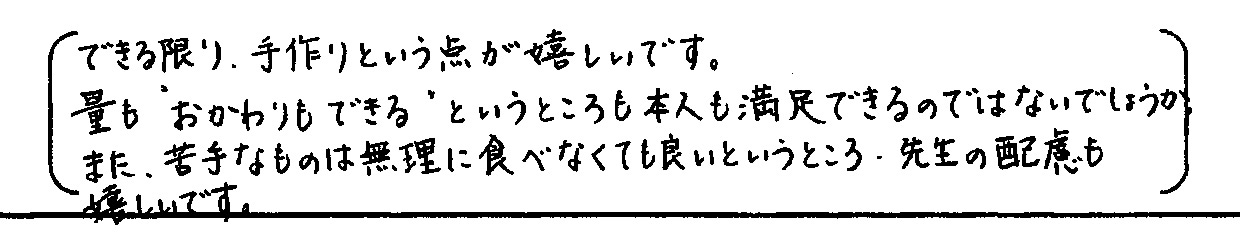 できる限り、手作りという点が嬉しいです。
量も〝おかわりもできる〟というところも本人も満足できるのではないでしょうか。
また、苦手なものは無理に食べなくても良いというところ、先生の配慮も
嬉しいです。